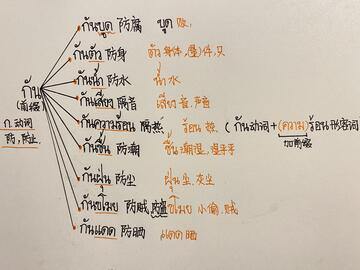 กันบูด 防腐 บูด
กันตัว 防身 ตัว 身体, (量)件,只
กันน้ำ 防水 น้ำ 水
กันเสียง 隔音 เสียง 音,声音
กัน
(前缀)
ก. 动词
防,防止.
กันความร้อน 隔热 ร้อน 热 (กัน动词+(ความ)ร้อน形容词
加前缀
กันชื้น 防潮 ชื้น 潮湿,湿乎乎
กันฝุ่น 防尘 ฝุ่น 尘,灰尘
กันขโมย 防贼,防盗 ขโมย 小偷,贼
กันแดด 防晒 แดด 晒